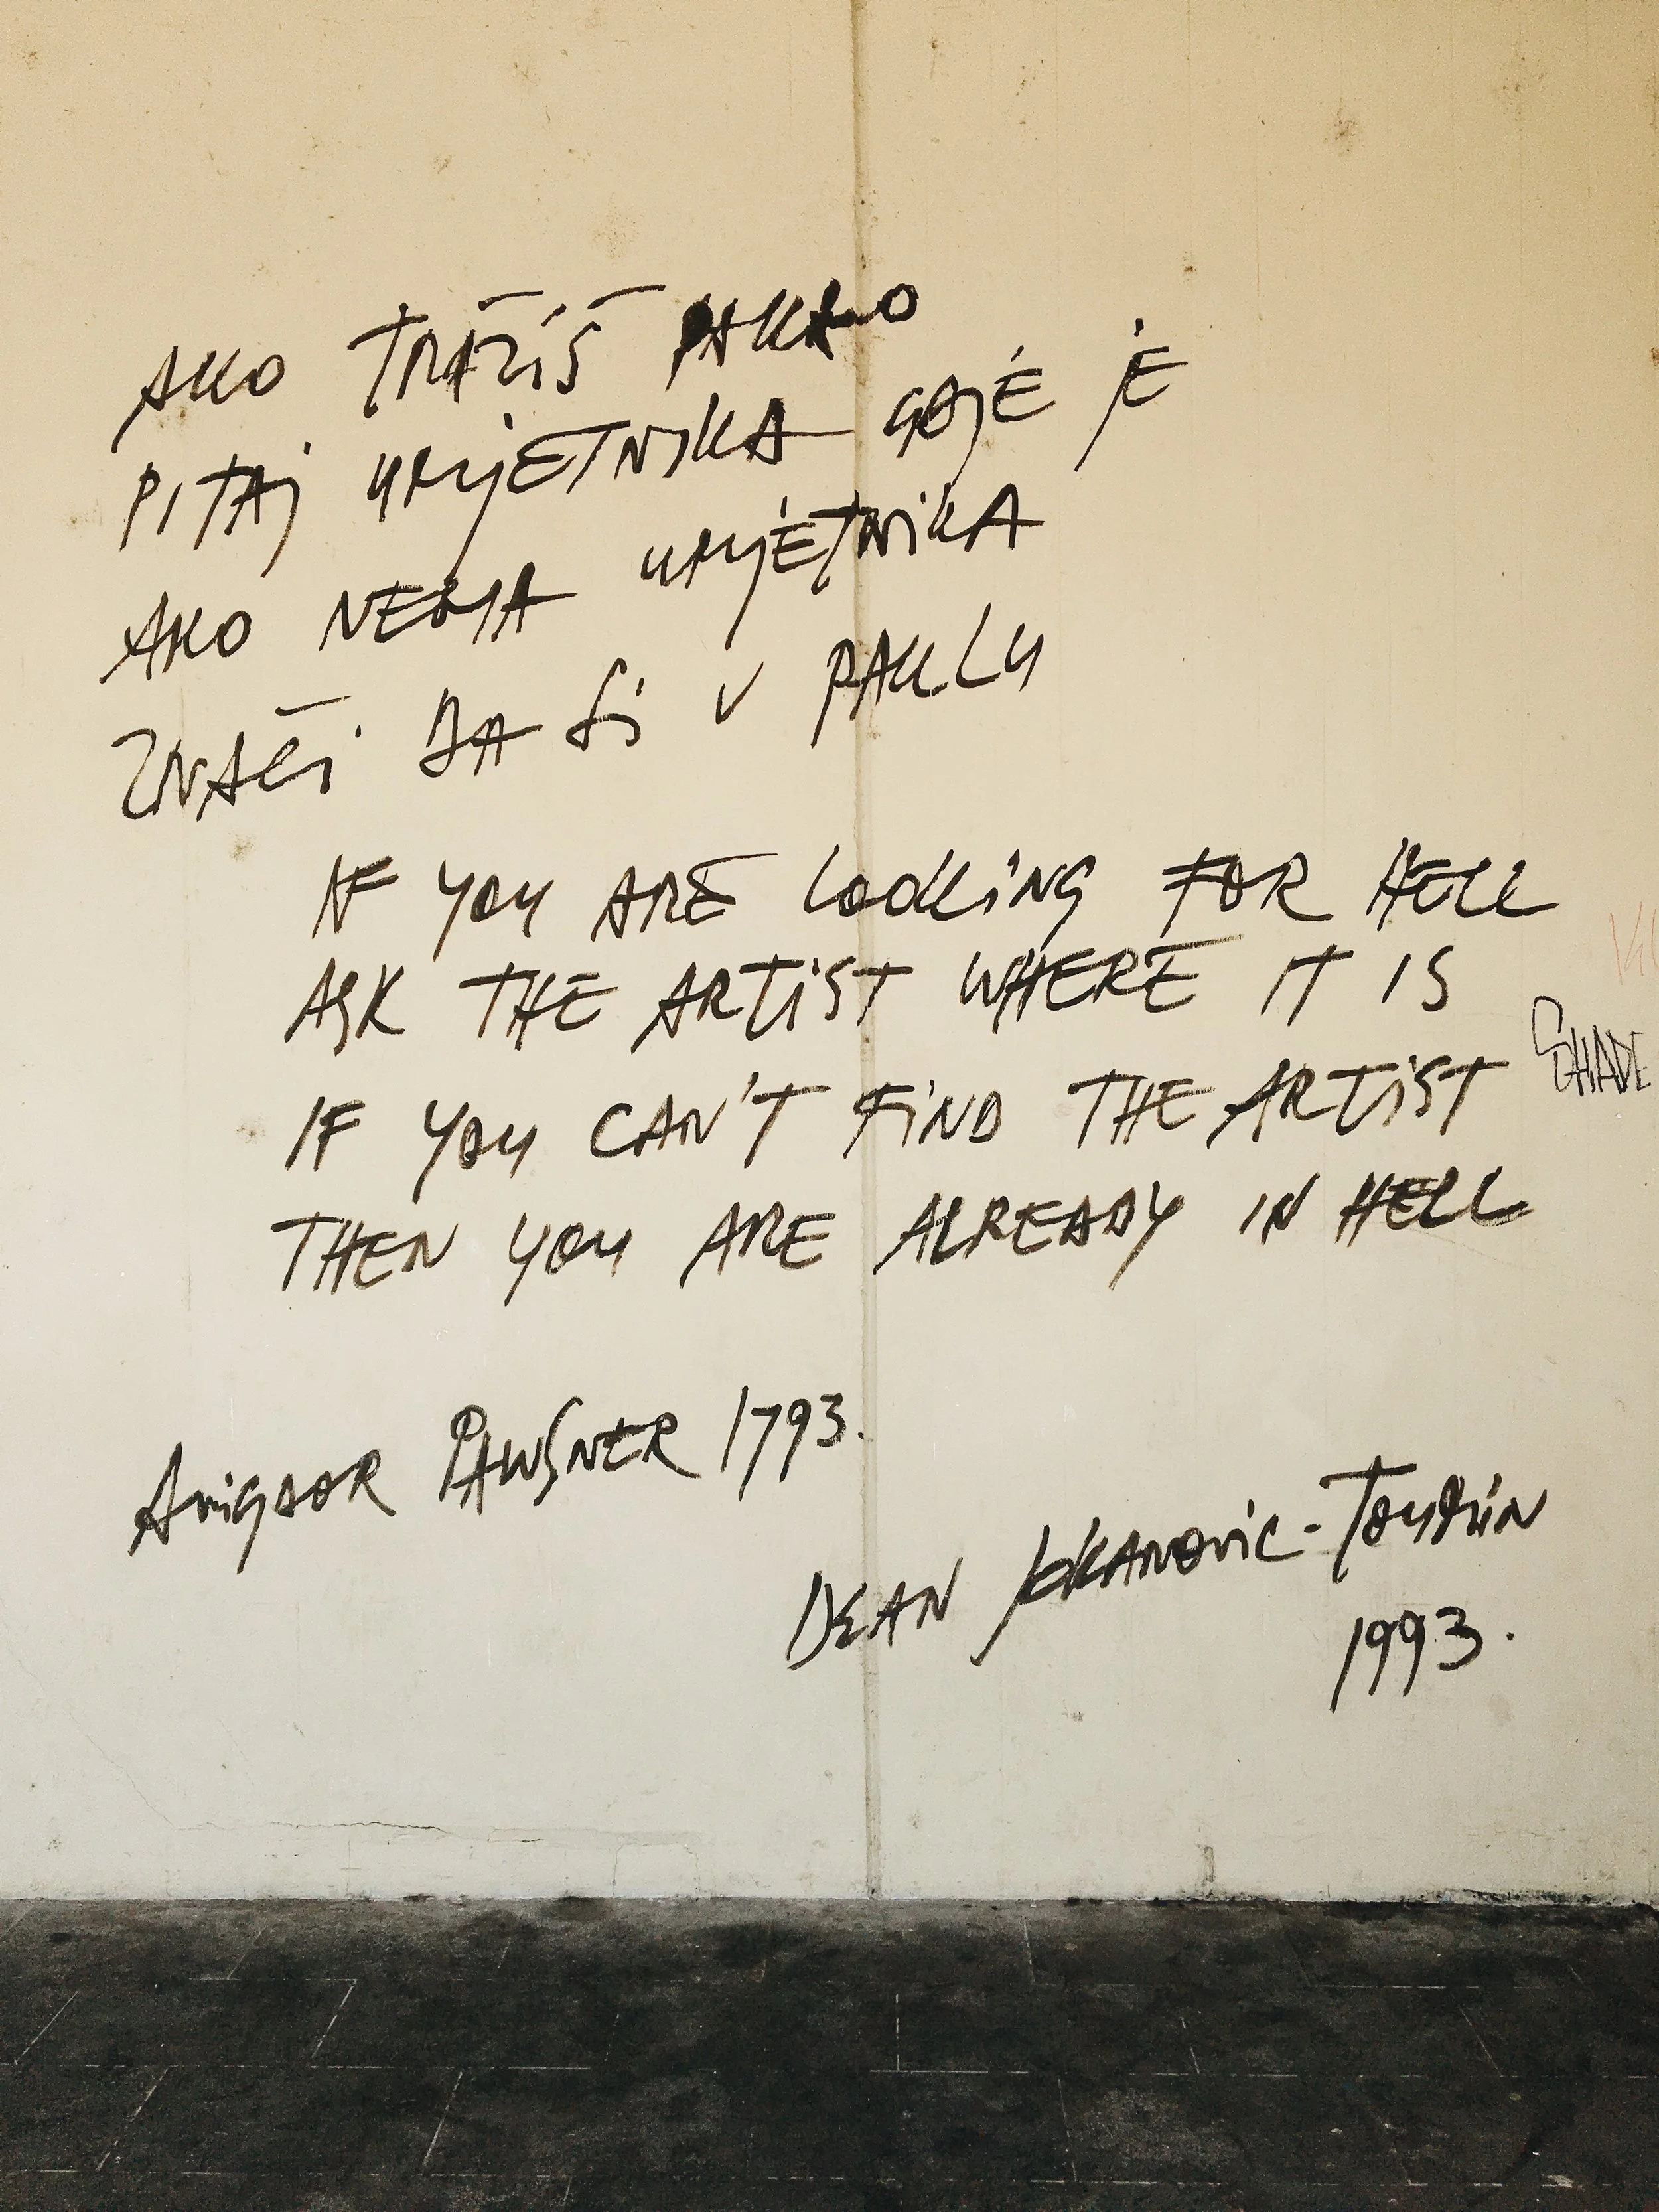 AKO TRAŽIŠ PAKAO
PITAJ UMJETNIKA GDJE JE
AKO NEMA UMJETNIKA
ZNAČI DA SI V PAKLU
IF YOU ARE LOOKING FOR HELL
ASK THE ARTIST WHERE IT IS
IF YOU CAN'T FIND THE ARTIST
THEN YOU ARE ALREADY IN HELL
SHADE
AVIGDOR PAWSNER 1793.
DEAN JOKANOVIC-TOUMIN
1993.